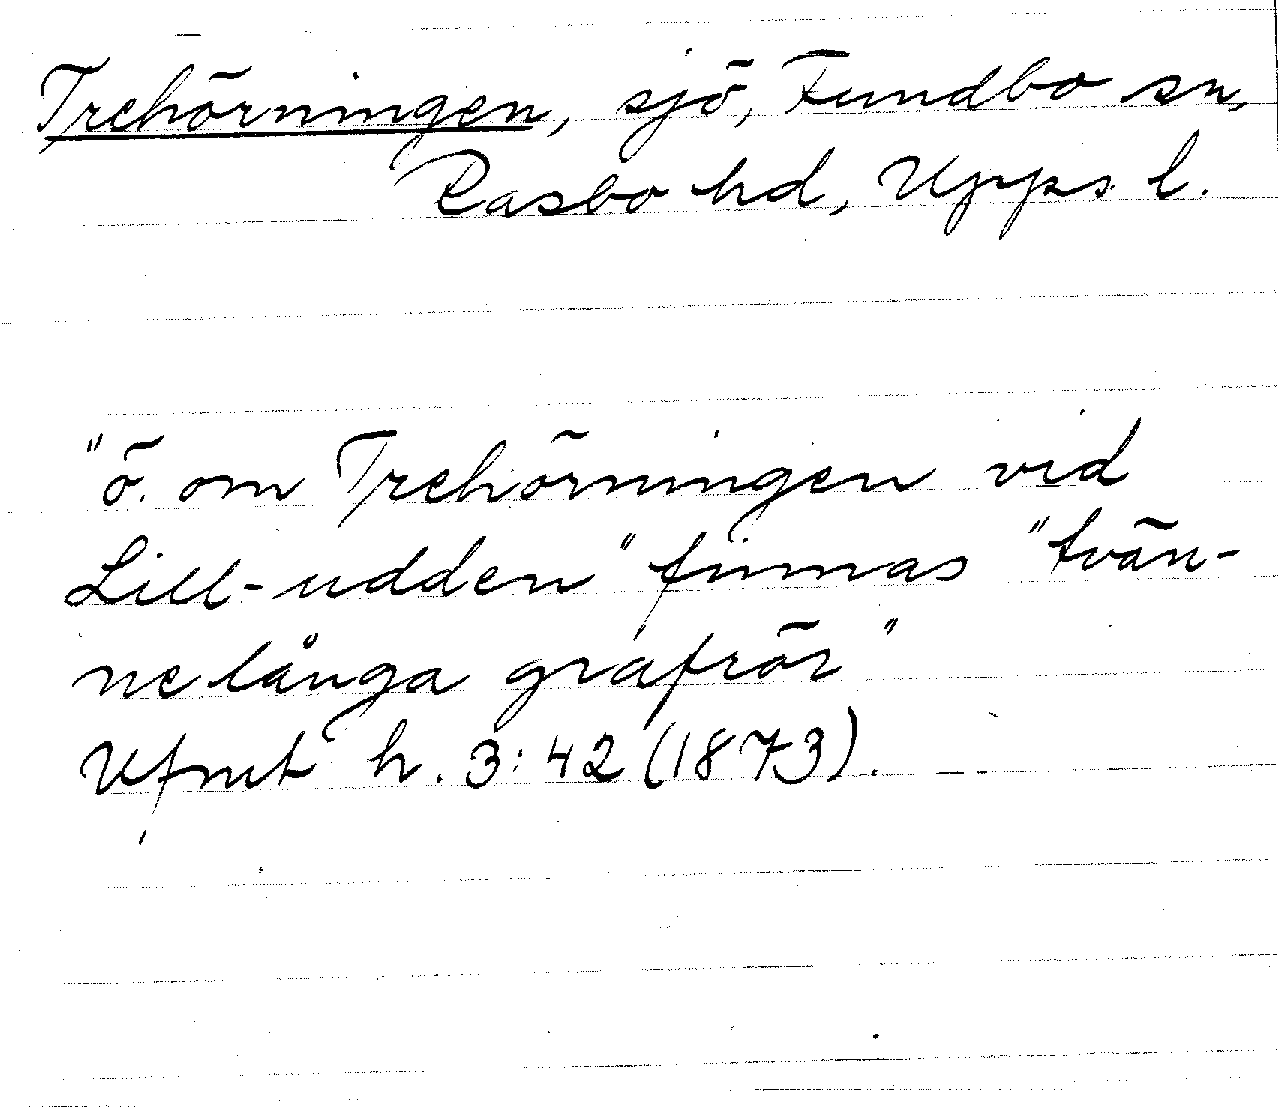 Trehörningen, sjö, Funbo sn,
Rasbo hd, Upps. l.
"ö. om Trehörningen vid
Lill-udden" finnas "tvän-
ne långa grafrör"
Ufmt h. 3:42 (1873).